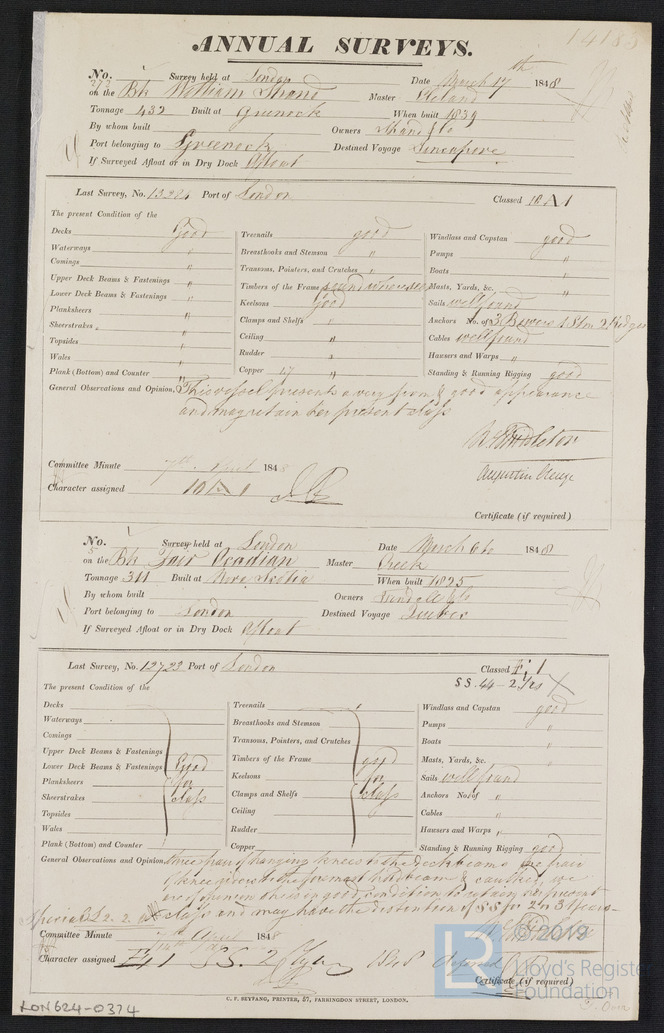 14183
ANNUAL SURVEYS.
No. Survey held at London Date March 17th 1848
on the Bk William Shand Master
Tonnage 432 Built at Greenock When built 1839
By whom built Owners Shand & Co
Port belonging to Greenock Destined Voyage Singapore
If Surveyed Afloat or in Dry Dock Afloat
Last Survey, No. 13384 Port of London Classed 10 A 1
The present Condition of the
Decks Good Treenails good Windlass and Capstan good
Waterways " Breasthooks and Stemson " Pumps "
Comings " Transoms, Pointers, and Crutches " Boats "
Upper Deck Beams & Fastenings " Timbers of the Frame sound where seen Masts, Yards, &c. "
Lower Deck Beams & Fastenings " Keelsons good Sails well found
Planksheers " Clamps and Shelfs " Anchors No. of 3 Bowers 1 Stm 2 Kedges
Sheerstrakes " Ceiling " Cables well found
Topsides " Rudder " Hawsers and Warps "
Wales " Copper 47 " Standing & Running Rigging good
Plank (Bottom) and Counter "
General Observations and Opinion, This vessel presents a very firm & good appearance
and may retain her present class
Committee Minute 7th April 1848
Character assigned 10 A 1
Certificate (if required)
No. Survey held at London Date March 6th 1848
on the Bk Fair Acadian Master
Tonnage 311 Built at Nova Scotia When built 1825
By whom built Owners
Port belonging to London Destined Voyage Quebec
If Surveyed Afloat or in Dry Dock Afloat
Last Survey, No. 12723 Port of London Classed Æ 1
SS. 44 - 2 Yrs
The present Condition of the
Decks Treenails Windlass and Capstan good
Waterways Breasthooks and Stemson Pumps "
Comings Transoms, Pointers, and Crutches Boats "
Upper Deck Beams & Fastenings Timbers of the Frame good Masts, Yards, &c. "
Lower Deck Beams & Fastenings Good Keelsons for Sails well found
Planksheers for Clamps and Shelfs class Anchors No. of "
Sheerstrakes class Ceiling Cables "
Topsides Rudder Hawsers and Warps "
Wales Copper Standing & Running Rigging good
Plank (Bottom) and Counter
General Observations and Opinion, three pair of hanging knees to the deck beams one pair
of knee riders to the foremost hold beam &
in good condition to retain her present
class and may have the distinction of SS for 2 or 3 Years
Special £2.2.0
Committee Minute April 1848
Character assigned Æ 1 SS. 2 1848
Certificate (if required)
C. F. SEYFANG, PRINTER, 57, FARRINGDON STREET, LONDON.
LON624-0374
© 2019
LR
Lloyd's Register
Foundation